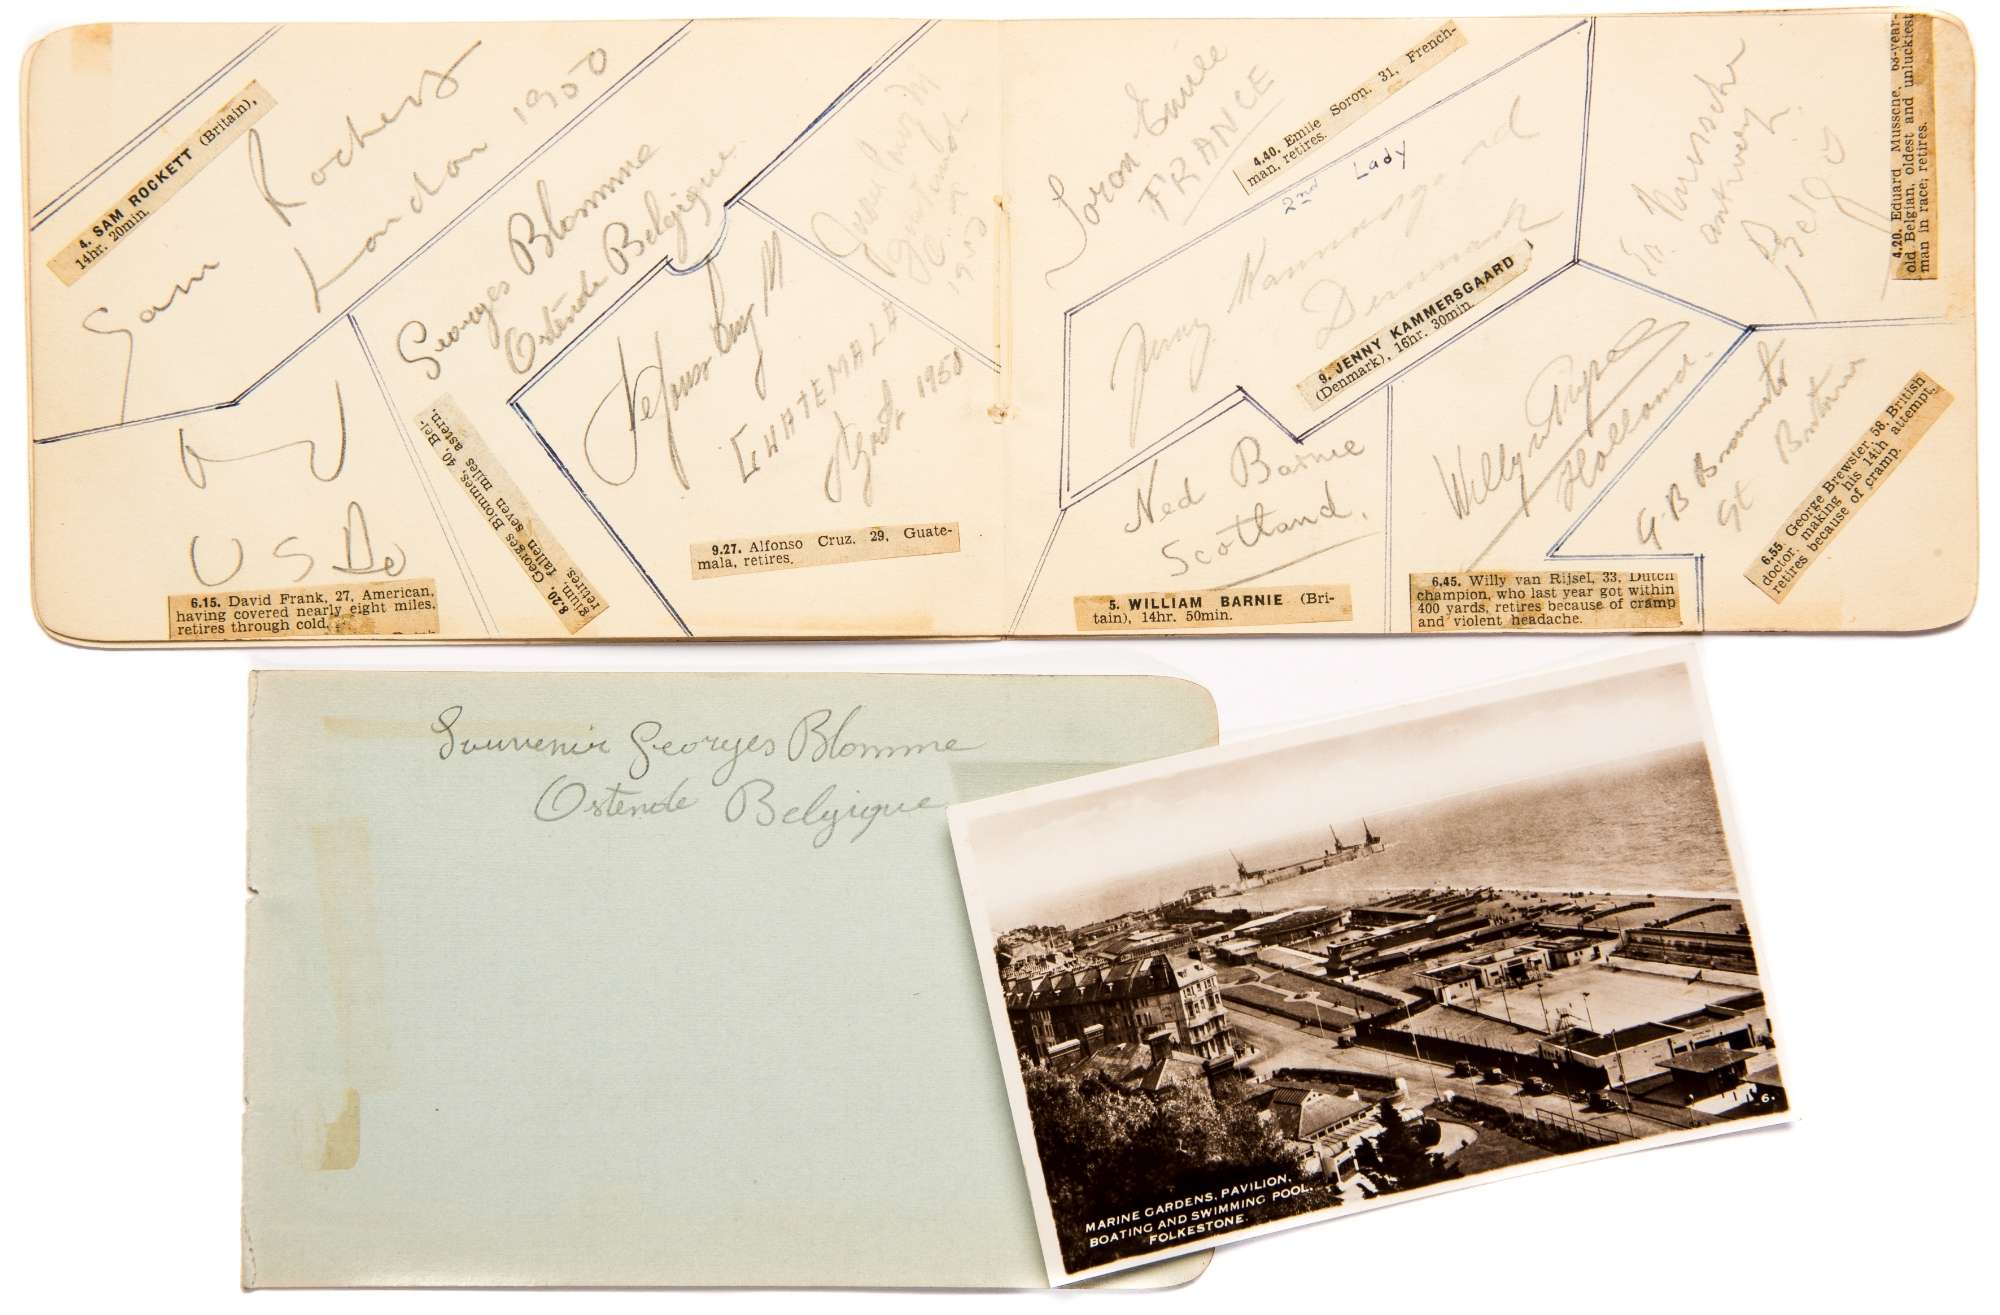 4. SAM ROCKETT (Britain),
14hr. 20min.
Sam Rockett
London 1950
Georges Blomme
Ostende Belgique
8.20. Georges Blommes, 40, Bel-
gium, fallen seven miles astern,
retires.
U S
6.15. David Frank, 27, American,
having covered nearly eight miles,
retires through cold.
Alfonso Cruz M
GUATEMALA
1950
9.27. Alfonso Cruz, 29, Guate-
mala, retires.
Cruz M
1950
Soron Emile
FRANCE
4.40. Emile Soron, 31, French-
man, retires.
2nd Lady
Jenny Kammersgaard
Denmark
9. JENNY KAMMERSGAARD
(Denmark), 16hr. 30min.
Ned Barnie
Scotland.
5. WILLIAM BARNIE (Bri-
tain), 14hr. 50min.
Willy v Rijsel
Holland.
6.45. Willy van Rijsel, 33, Dutch
champion, who last year got within
400 yards, retires because of cramp
and violent headache.
Mussche
4.20. Eduard Mussche, 63-year-
old Belgian, oldest and unluckiest
man in race; retires.
G. B Brewster
Gt Britain
6.55. George Brewster, 58, British
doctor, making his 14th attempt,
retires because of cramp.
Souvenir Georges Blomme
Ostende Belgique
MARINE GARDENS, PAVILION,
BOATING AND SWIMMING POOL,
FOLKESTONE.
6.